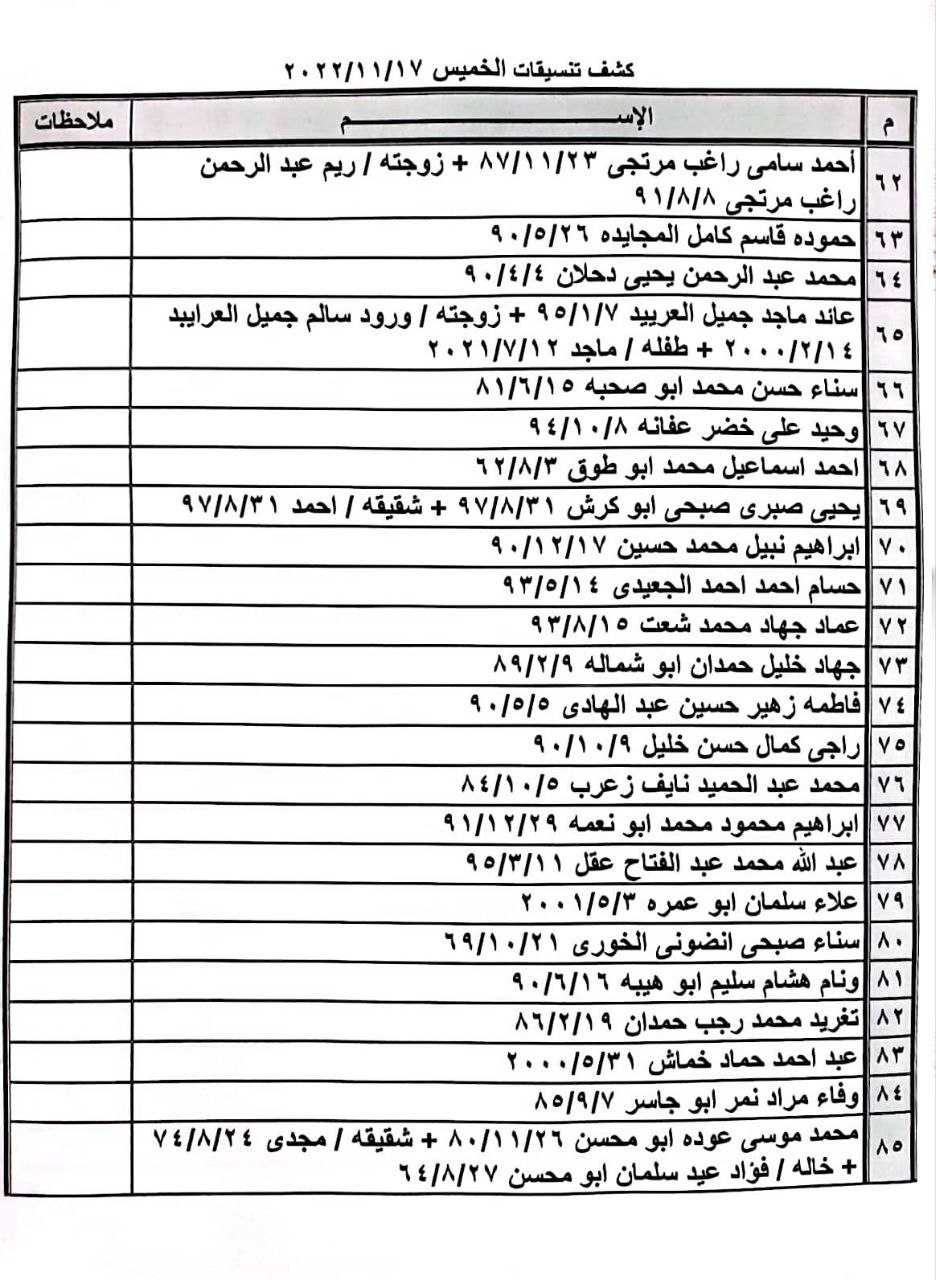 كشف تنسيقات الخميس ٢٠٢٢/١١/١٧
م الإســـــــــم ملاحظات
٦٢ أحمد سامى راغب مرتجى ٨٧/١١/٢٣ + زوجته / ريم عبد الرحمن
راغب مرتجى ٩١/٨/٨
٦٣ حموده قاسم كامل المجايده ٩٠/٥/٢٦
٦٤ محمد عبد الرحمن يحيى دحلان ٩٠/٤/٤
٦٥ عائد ماجد جميل العرييد ٩٥/١/٧ + زوجته / ورود سالم جميل العراييد
٢٠٠٠/٢/١٤ + طفله / ماجد ٢٠٢١/٧/١٢
٦٦ سناء حسن محمد ابو صحبه ٨١/٦/١٥
٦٧ وحيد على خضر عفانه ٩٤/١٠/٨
٦٨ احمد اسماعيل محمد ابو طوق ٦٢/٨/٣
٦٩ يحيى صبرى صبحى ابو كرش ٩٧/٨/٣١ + شقيقه / احمد ٩٧/٨/٣١
٧٠ ابراهيم نبيل محمد حسين ٩٠/١٢/١٧
٧١ حسام احمد احمد الجعيدى ٩٣/٥/١٤
٧٢ عماد جهاد محمد شعت ٩٣/٨/١٥
٧٣ جهاد خليل حمدان ابو شماله ٨٩/٢/٩
٧٤ فاطمه زهير حسين عبد الهادى ٩٠/٥/٥
٧٥ راجي كمال حسن خليل ٩٠/١٠/٩
٧٦ محمد عبد الحميد نايف زعرب ٨٤/١٠/٥
٧٧ ابراهيم محمود محمد ابو نعمه ٩١/١٢/٢٩
٧٨ عبد الله محمد عبد الفتاح عقل ٩٥/٣/١١
٧٩ علاء سلمان ابو عمره ٢٠٠١/٥/٣
٨٠ سناء صبحى انضونى الخورى ٦٩/١٠/٢١
٨١ وئام هشام سليم ابو هيبه ٩٠/٦/١٦
٨٢ تغريد محمد رجب حمدان ٨٦/٢/١٩
٨٣ عبد احمد حماد خماش ٢٠٠٠/٥/٣١
٨٤ وفاء مراد نمر ابو جاسر ٨٥/٩/٧
٨٥ محمد موسى عوده ابو محسن ٨٠/١١/٢٦ + شقيقه / مجدى ٧٤/٨/٢٤
+ خاله / فؤاد عيد سلمان ابو محسن ٦٤/٨/٢٧